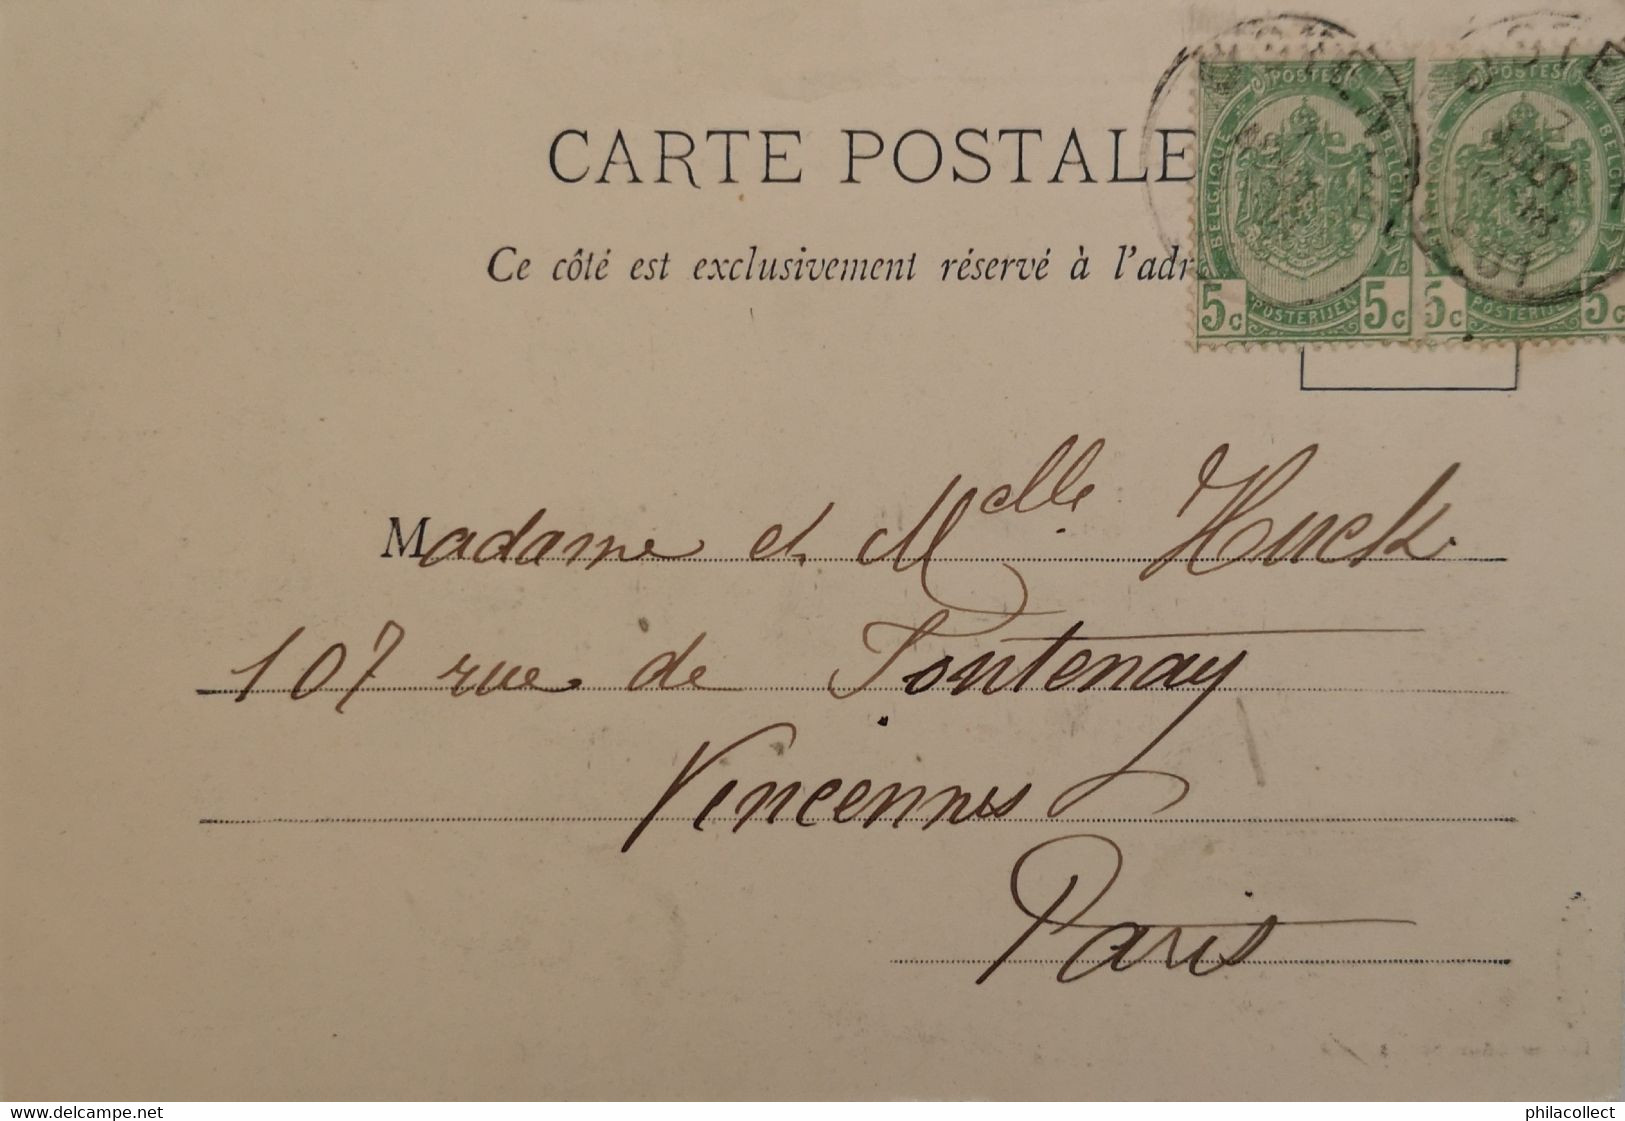 CARTE POSTALE
Ce côté est exclusivement réservé à l'adr
POSTES
BELGIQUE BELGIË
5c POSTERIJEN 5c
POSTES
GIQUE BELGI
5c POSTERIJEN 5c
Madame et Melle Huck
107 rue de Fontenay
Vincennes
Paris
www.delcampe.net
philacollect